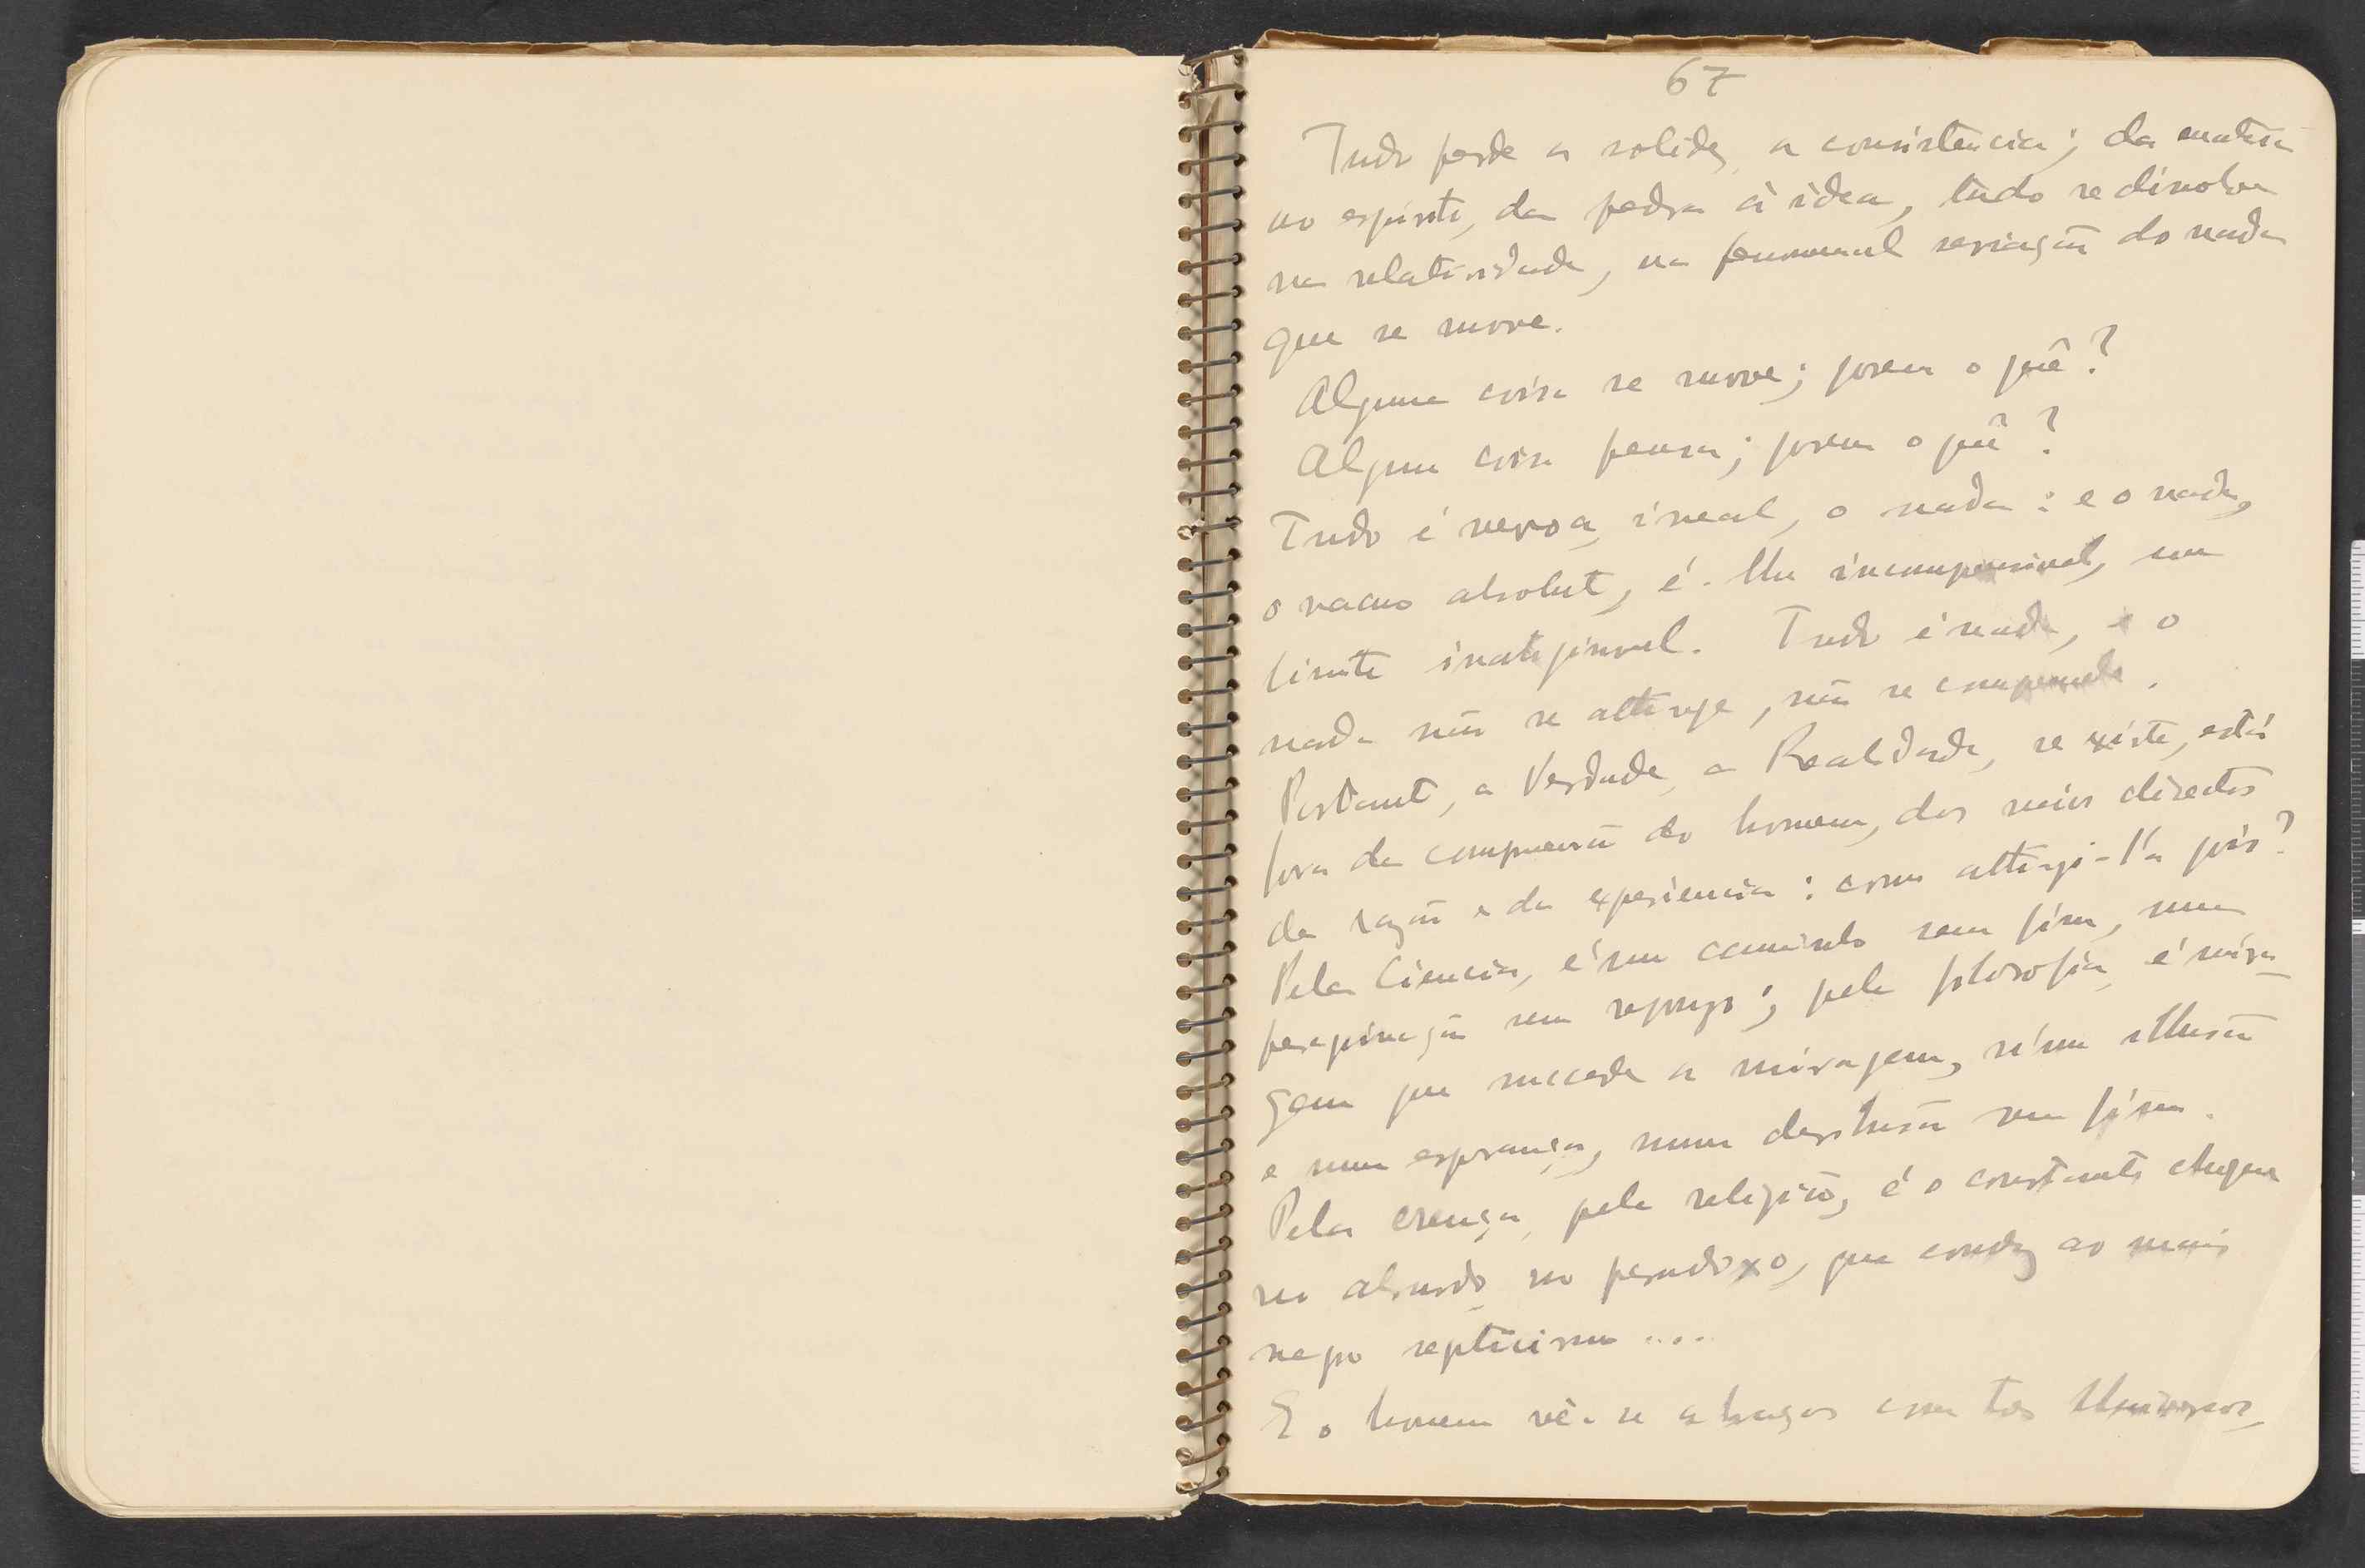 67
Tudo perde a solidez, a consistencia; da materia
ao espirito, da pedra à idea, tudo se dissolve
na relatividade, na fenomenal seriação do nada
que se move.
Alguma coisa se move; porem o quê?
Alguma coisa pensa; porem o quê?
Tudo é nevoa, irreal, o nada: e o nada,
o vacuo absoluto, é. Um incompreensivel, um
limite inatingivel. Tudo é nada, e o
nada não se attinge, não se comprehende.
Portanto, a Verdade, a Realidade, se existe, está
fora da compreensão do homem, dos meios directos
da razão e da experiencia: como attingi-l'a pois?
Pela Ciencia, é um caminho sem fim, uma
peregrinação sem repouso; pela filosofia, é mira-
gem que succede a miragem, n'uma illusão
e numa esperança, numa desillusão sem fim.
Pela crença, pela religião, é o constante chegar
no absurdo, no paradoxo, que conduz ao mais
negro septicismo ....
E o homem vê-se a braços com tres Universos,